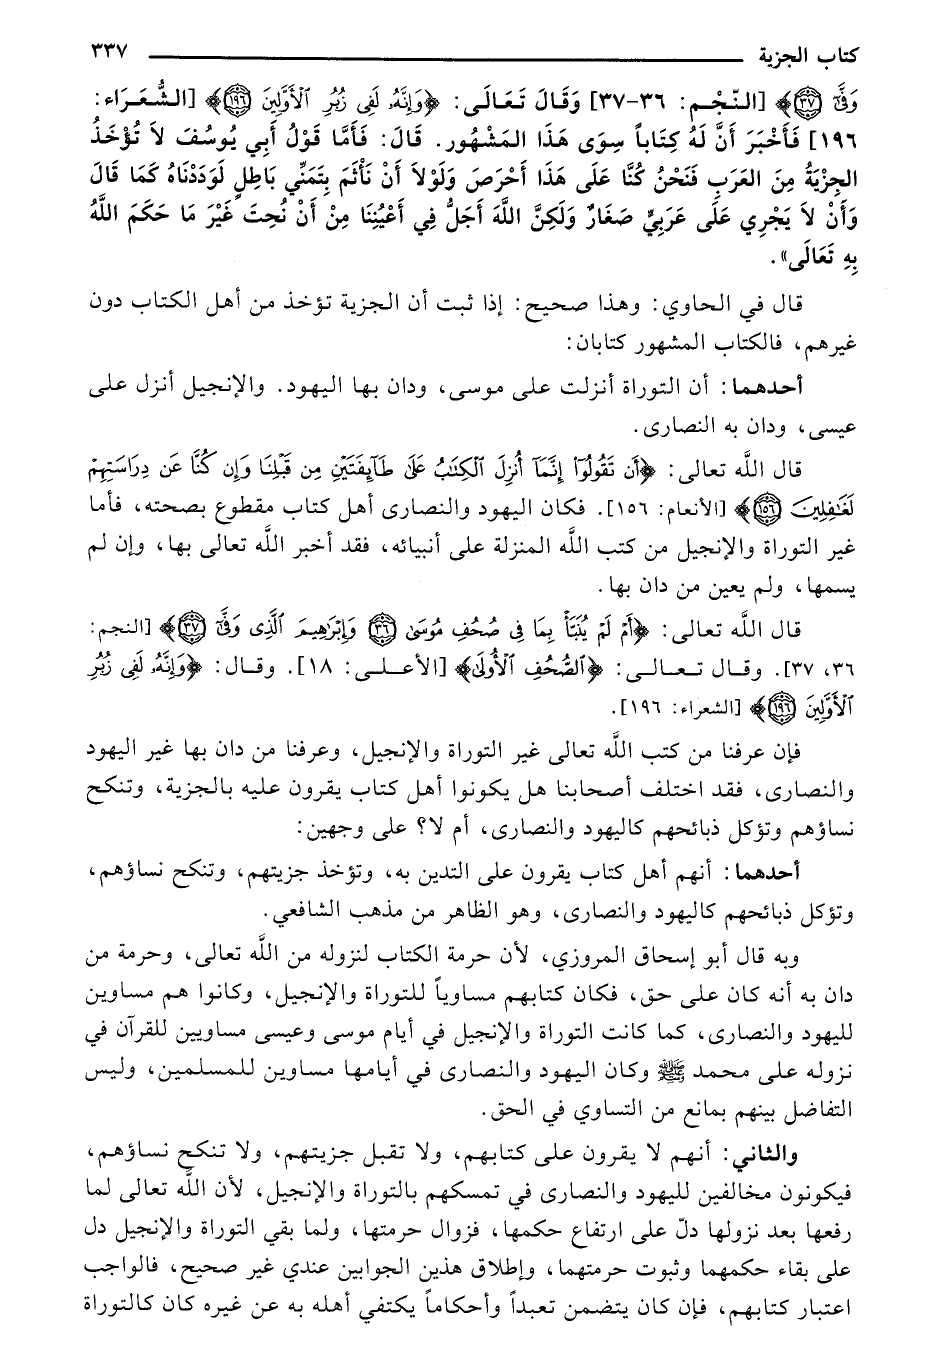 كتاب الجزية ٣٣٧
وَفَّىٰٓ (٣٧)﴾ [النَّجْم: ٣٦-٣٧] وَقَالَ تَعَالَى: ﴿وَإِنَّهُۥ لَفِى زُبُرِ ٱلْأَوَّلِينَ (١٩٦)﴾ [الشُّعَرَاء:
١٩٦] فَأَخْبَرَ أَنَّ لَهُ كِتَاباً سِوَى هَذَا المَشْهُورِ. قَالَ: فَأَمَّا قَوْلُ أَبِي يُوسُفَ لاَ تُؤْخَذُ
الجِزْيَةُ مِنَ العَرَبِ فَنَحْنُ كُنَّا عَلَى هَذَا أَحْرَصَ وَلَوْلاَ أَنْ نَأْثَمَ بِتَمَنِّي بَاطِلٍ لَوَدَدْنَاهُ كَمَا قَالَ
وَأَنْ لاَ يَجْرِي عَلَى عَرَبِيٍّ صَغَارٌ وَلَكِنَّ اللَّهَ أَجَلُّ فِي أَعْيُنِنَا مِنْ أَنْ نُحِبَّ غَيْرَ مَا حَكَمَ اللَّهُ
بِهِ تَعَالَى».
قال في الحاوي: وهذا صحيح: إذا ثبت أن الجزية تؤخذ من أهل الكتاب دون
غيرهم، فالكتاب المشهور كتابان:
أحدهما: أن التوراة أنزلت على موسى، ودان بها اليهود. والإنجيل أنزل على
عيسى، ودان به النصارى.
قال اللَّه تعالى: ﴿أَن تَقُولُوٓا۟ إِنَّمَآ أُنزِلَ ٱلْكِتَٰبُ عَلَىٰ طَآئِفَتَيْنِ مِن قَبْلِنَا وَإِن كُنَّا عَن دِرَاسَتِهِمْ
لَغَٰفِلِينَ (١٥٦)﴾ [الأنعام: ١٥٦]. فكان اليهود والنصارى أهل كتاب مقطوع بصحته، فأما
غير التوراة والإنجيل من كتب اللَّه المنزلة على أنبيائه، فقد أخبر اللَّه تعالى بها، وإن لم
يسمها، ولم يعين من دان بها.
قال اللَّه تعالى: ﴿أَمْ لَمْ يُنَبَّأْ بِمَا فِى صُحُفِ مُوسَىٰ (٣٦) وَإِبْرَٰهِيمَ ٱلَّذِى وَفَّىٰٓ (٣٧)﴾ [النجم:
٣٦، ٣٧]. وقال تعالى: ﴿ٱلصُّحُفِ ٱلْأُولَىٰ﴾ [الأعلى: ١٨]. وقال: ﴿وَإِنَّهُۥ لَفِى زُبُرِ
ٱلْأَوَّلِينَ (١٩٦)﴾ [الشعراء: ١٩٦].
فإن عرفنا من كتب اللَّه تعالى غير التوراة والإنجيل، وعرفنا من دان بها غير اليهود
والنصارى، فقد اختلف أصحابنا هل يكونوا أهل كتاب يقرون عليه بالجزية، وتنكح
نساؤهم وتؤكل ذبائحهم كاليهود والنصارى، أم لا؟ على وجهين:
أحدهما: أنهم أهل كتاب يقرون على التدين به، وتؤخذ جزيتهم، وتنكح نساؤهم،
وتؤكل ذبائحهم كاليهود والنصارى، وهو الظاهر من مذهب الشافعي.
وبه قال أبو إسحاق المروزي، لأن حرمة الكتاب لنزوله من اللَّه تعالى، وحرمة من
دان به أنه كان على حق، فكان كتابهم مساوياً للتوراة والإنجيل، وكانوا هم مساوين
لليهود والنصارى، كما كانت التوراة والإنجيل في أيام موسى وعيسى مساويين للقرآن في
نزوله على محمد ﷺ وكان اليهود والنصارى في أيامها مساوين للمسلمين، وليس
التفاضل بينهم بمانع من التساوي في الحق.
والثاني: أنهم لا يقرون على كتابهم، ولا تقبل جزيتهم، ولا تنكح نساؤهم،
فيكونون مخالفين لليهود والنصارى في تمسكهم بالتوراة والإنجيل، لأن اللَّه تعالى لما
رفعها بعد نزولها دلّ على ارتفاع حكمها، فزوال حرمتها، ولما بقي التوراة والإنجيل دل
على بقاء حكمهما وثبوت حرمتهما، وإطلاق هذين الجوابين عندي غير صحيح، فالواجب
اعتبار كتابهم، فإن كان يتضمن تعبداً وأحكاماً يكتفي أهله به عن غيره كان كالتوراة